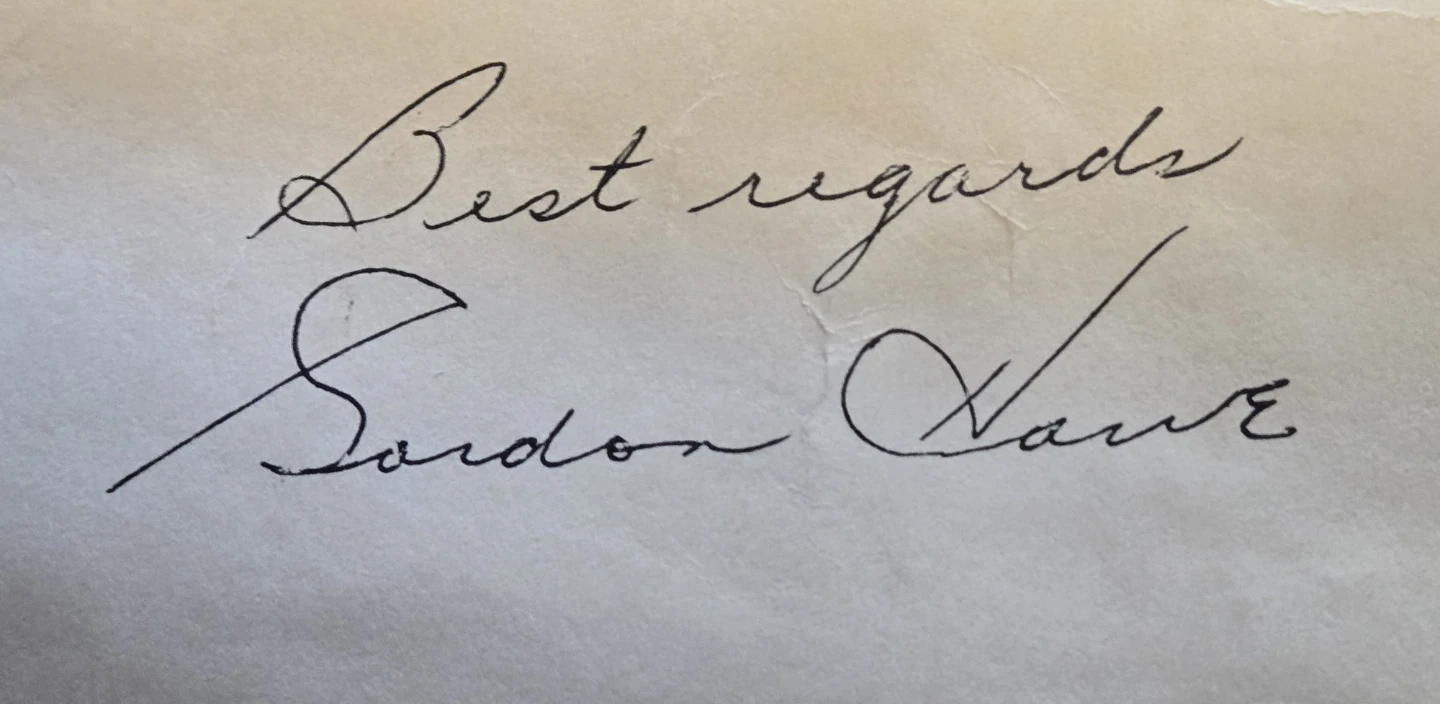 Best regards
Gordon Howe